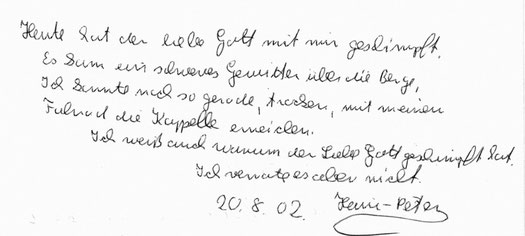 Heute hat der liebe Gott mit mir geschimpft.
Es kam ein schweres Gewitter über die Berge,
Ich konnte noch so gerade, trocken, mit meinen
Fahrrad die Kappelle erreichen.
Ich weiß auch warum der Liebe Gott geschimpft hat.
Ich verrate es aber nicht.
20.8.02. Hans-Peter